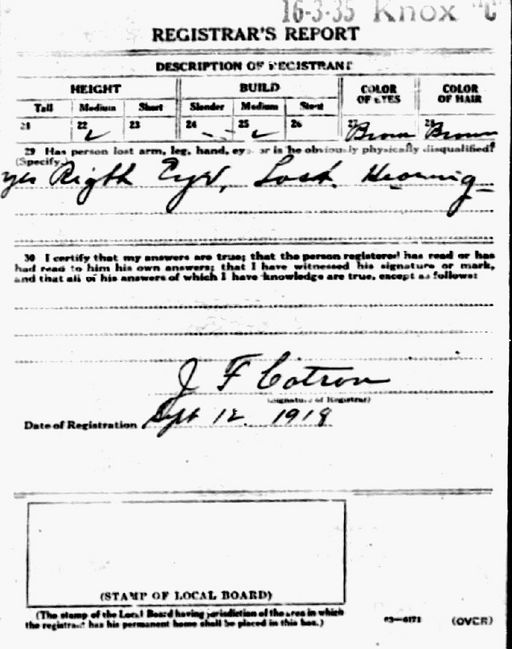 16-3-35 Knox "C"
REGISTRAR'S REPORT
DESCRIPTION OF REGISTRANT
HEIGHT BUILD COLOR OF EYES COLOR OF HAIR
Tall Medium Short Slender Medium Stout
21 22 ✓ 23 24 25 ✓ 26 27 Brown 28 Brown
29 Has person lost arm, leg, hand, eye, or is he obviously physically disqualified?
(Specify.)
yes Rigth Eye, Lost. Hearing
30 I certify that my answers are true; that the person registered has read or has
had read to him his own answers; that I have witnessed his signature or mark,
and that all of his answers of which I have knowledge are true, except as follows:
J F Catron
(Signature of Registrar)
Date of Registration Sept 12 1918
(STAMP OF LOCAL BOARD)
(The stamp of the Local Board having jurisdiction of the area in which
the registrant has his permanent home shall be placed in this box.)
03—6171 (OVER)